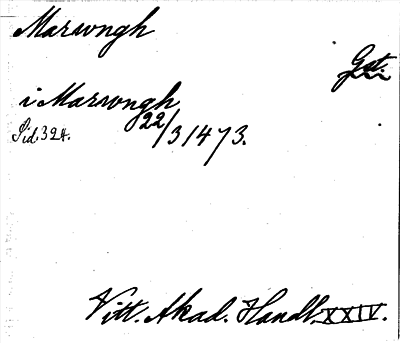 Marsvngh
Gtl.
i Marsvngh
22/3 1473.
Sid. 324.
Vitt. Akad. Handl. XXIV.